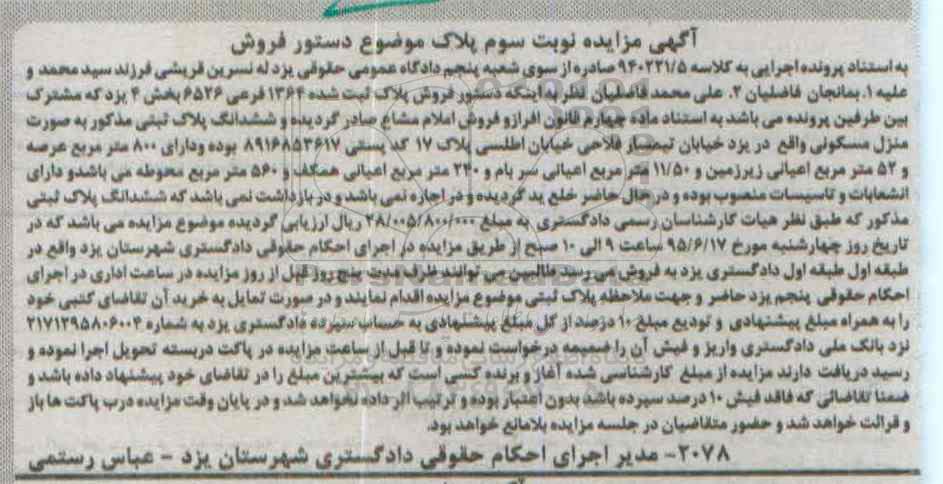 آگهی مزایده نوبت سوم پلاک موضوع دستور فروش
به استناد پرونده اجرایی به کلاسه ۹۴۰۲۲۱/۵ صادره از سوی شعبه پنجم دادگاه عمومی حقوقی یزد له نسرین قریشی فرزند سید محمد و
علیه ۱. بمانجان فاضلیان ۲. علی محمد فاضلیان نظر به اینکه دستور فروش پلاک ثبت شده ۱۳۶۴ فرعی ۶۵۲۶ بخش ۴ یزد که مشترک
بین طرفین پرونده می باشد به استناد ماده چهارم قانون افراز و فروش املام مشاع صادر گردیده و ششدانگ پلاک ثبتی مذکور به صورت
منزل مسکونی واقع در یزد خیابان تیمسار فلاحی خیابان اطلسی پلاک ۱۷ کد پستی ۸۹۱۶۸۵۳۶۱۷ بوده ودارای ۸۰۰ متر مربع عرصه
و ۵۲ متر مربع اعیانی زیرزمین و ۱۱/۵۰ متر مربع اعیانی سر بام و ۲۴۰ متر مربع اعیانی همکف و ۵۶۰ متر مربع محوطه می باشدو دارای
انشعابات و تاسیسات منصوب بوده و در حال حاضر خلع ید گردیده و در اجاره نمی باشد و در بازداشت نمی باشد که ششدانگ پلاک ثبتی
مذکور که طبق نظر هیات کارشناسان رسمی دادگستری به مبلغ ۲۸/۰۰۵/۸۰۰/۰۰۰ ریال ارزیابی گردیده موضوع مزایده می باشد که در
تاریخ روز چهارشنبه مورخ ۹۵/۶/۱۷ ساعت ۹ الی ۱۰ صبح از طریق مزایده در اجرای احکام حقوقی دادگستری شهرستان یزد واقع در
طبقه اول طبقه اول دادگستری یزد به فروش می رسد طالبین می توانند ظرف مدت پنج روز قبل از روز مزایده در ساعت اداری در اجرای
احکام حقوقی پنجم یزد حاضر و جهت ملاحظه پلاک ثبتی موضوع مزایده اقدام نمایند و در صورت تمایل به خرید آن تقاضای کتبی خود
را به همراه مبلغ پیشنهادی و تودیع مبلغ ۱۰ درصد از کل مبلغ پیشنهادی به حساب سپرده دادگستری یزد به شماره ۲۱۷۱۲۹۵۸۰۶۰۰۴
نزد بانک ملی دادگستری واریز و فیش آن را ضمیمه درخواست نموده و تا قبل از ساعت مزایده در پاکت دربسته تحویل اجرا نموده و
رسید دریافت دارند مزایده از مبلغ کارشناسی شده آغاز و برنده کسی است که بیشترین مبلغ را در تقاضای خود پیشنهاد داده باشد و
ضمنا تقاضائی که فاقد فیش ۱۰ درصد سپرده باشد بدون اعتبار بوده و ترتیب اثر داده نخواهد شد و در پایان وقت مزایده درب پاکت ها باز
و قرائت خواهد شد و حضور متقاضیان در جلسه مزایده بلامانع خواهد بود.
۲۰۷۸- مدیر اجرای احکام حقوقی دادگستری شهرستان یزد - عباس رستمی